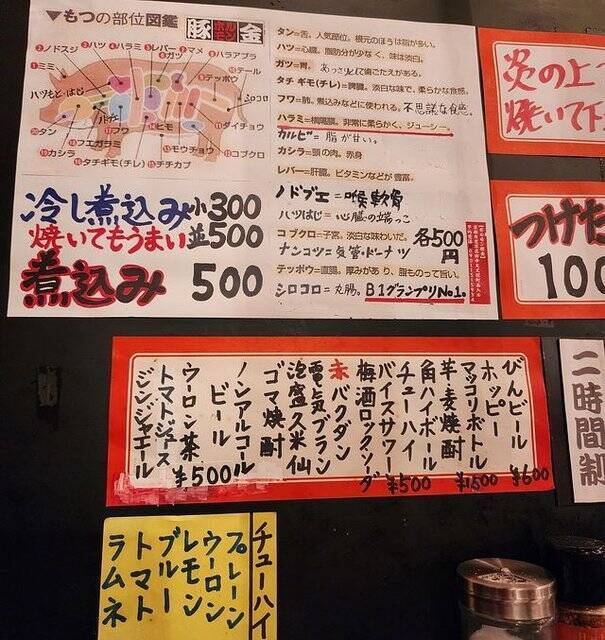 ▼もつの部位図鑑
豚ホルモン 金
ノドスジ
ハツ
ハラミ
レバー
マメ
ガツ
ハラアブラ
テール
テッポウ
ミミ
ハツもと はじ
シロコロ
ダイチョウ
コブクロ
モウチョウ
チチカブ
ヒモ
フワ
フエガラミ
タチギモ(チレ)
カシラ
タン
タン=舌。人気部位。根元のほうは脂が多い。
ハツ=心臓。脂肪分が少なく、味は淡白。
ガツ=胃。あっさりして歯ごたえがある。
タチギモ(チレ)=脾臓。淡白な味で、柔らかな食感。
フワ=肺。煮込みなどに使われる。不思議な食感。
ハラミ=横隔膜。非常に柔らかく、ジューシー。
カルビ=脂が甘い。
カシラ=頭の肉。赤身
レバー=肝臓。ビタミンなどが豊富。
ノドブエ=喉軟骨
ハツはじ=心臓の端っこ
コブクロ=子宮。淡白な味わいだ。
ナンコツ=気管・ドーナツ
テッポウ=直腸。厚みがあり、脂ものって旨い。
シロコロ=丸腸。B1グランプリNo.1。
各500円
冷し煮込み小300
焼いてもうまい並500
煮込み 500
炎の上
焼いて下
つけた
100
びんビール ¥600
ホッピー
マッコリボトル ¥1500
芋・麦焼酎
角ハイボール
チューハイ ¥500
バイスサワー
梅酒ロックソーダ
赤バクダン
電気ブラン
泡盛久米仙
ゴマ焼酎
ノンアルコールビール
ウーロン茶 ¥500
トマトジュース
ジンジャエール
二時間制
チューハイ
プレーン
ウーロン
レモン
ブルー
トマト
ラムネ